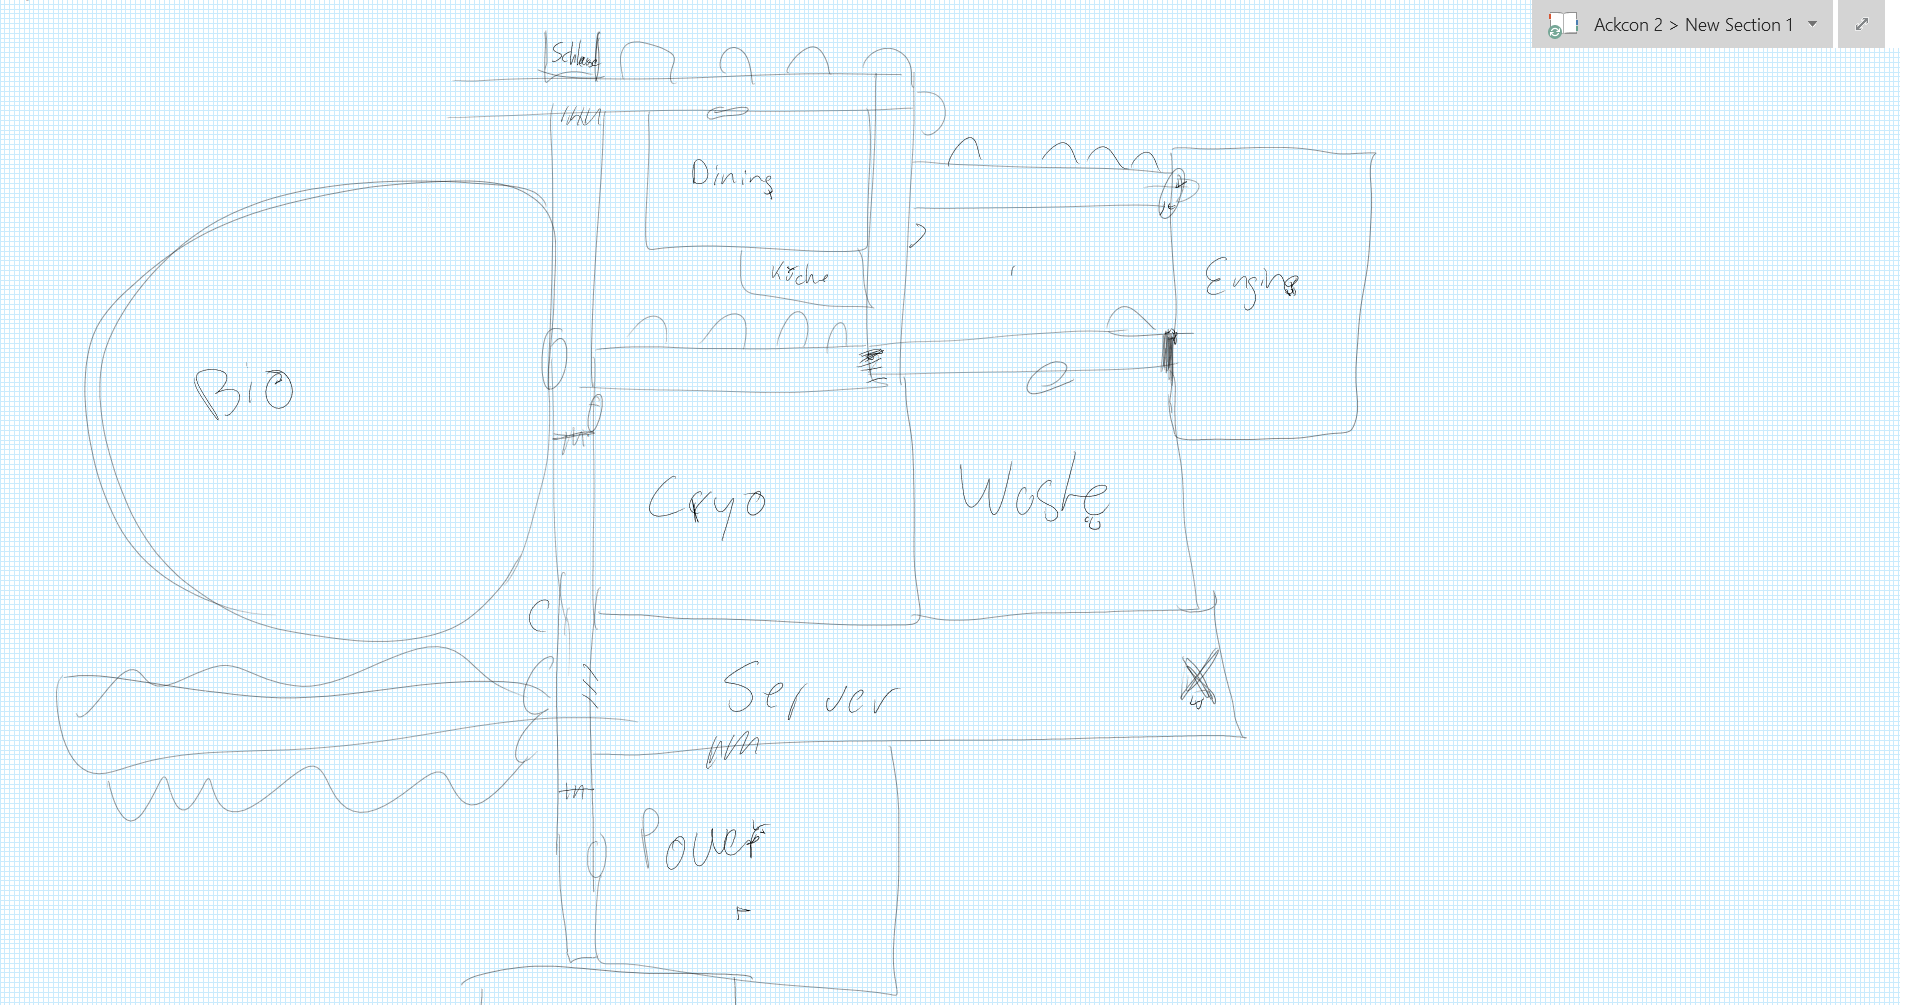 Ackcon 2 > New Section 1
Dining
Küche
Engine
Bio
Cryo
Waste
Server
Power